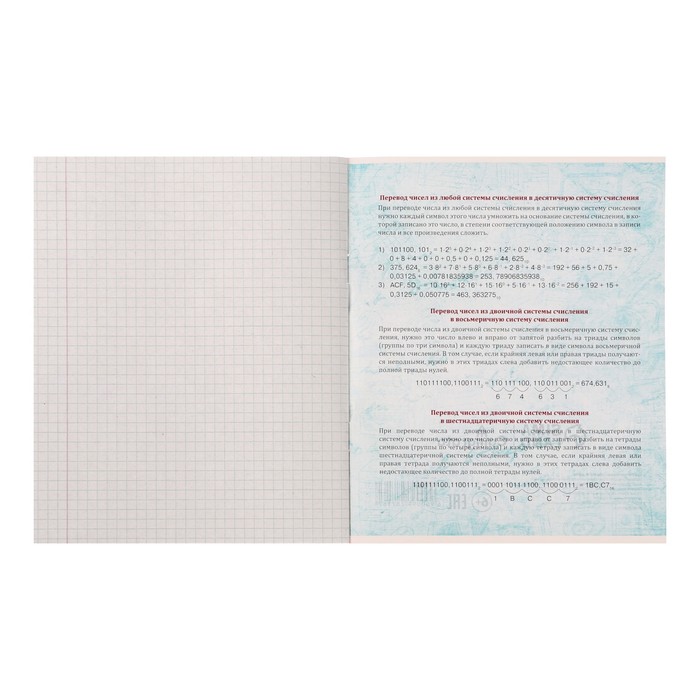 Перевод чисел из любой системы счисления в десятичную систему счисления
При переводе числа из любой системы счисления в десятичную систему счисления
нужно каждый символ этого числа умножить на основание системы счисления, в ко-
торой записано это число, в степени соответствующей положению символа в записи
числа и все произведения сложить.
1) 101100, 101₂ = 1·2⁵ + 0·2⁴ + 1·2³ + 1·2² + 0·2¹ + 0·2⁰ + 1·2⁻¹ + 0·2⁻² + 1·2⁻³ = 32 +
0 + 8 + 4 + 0 + 0 + 0,5 + 0 + 0,125 = 44, 625₁₀
2) 375, 624₈ = 3·8² + 7·8¹ + 5·8⁰ + 6·8⁻¹ + 2·8⁻² + 4·8⁻³ = 192 + 56 + 5 + 0,75 +
0,03125 + 0,00781835938 = 253, 78906835938₁₀
3) ACF, 5D₁₆ = 10·16² + 12·16¹ + 15·16⁰ + 5·16⁻¹ + 13·16⁻² = 256 + 192 + 15 +
0,3125 + 0,050775 = 463, 363275₁₀
Перевод чисел из двоичной системы счисления
в восьмеричную систему счисления
При переводе числа из двоичной системы счисления в восьмеричную систему счис-
ления, нужно это число влево и вправо от запятой разбить на триады символов
(группы по три символа) и каждую триаду записать в виде символа восьмеричной
системы счисления. В том случае, если крайняя левая или правая триады получают-
ся неполными, нужно в этих триадах слева добавить недостающее количество до
полной триады нулей.
110111100,1100111₂ = 110 111 100, 110 011 001₂ = 674,631₈
6 7 4 6 3 1
Перевод чисел из двоичной системы счисления
в шестнадцатеричную систему счисления
При переводе числа из двоичной системы счисления в шестнадцатеричную
систему счисления, нужно это число влево и вправо от запятой разбить на тетрады
символов (группы по четыре символа) и каждую тетраду записать в виде символа
шестнадцатеричной системы счисления. В том случае, если крайняя левая или
правая тетрада получаются неполными, нужно в этих тетрадах слева добавить
недостающее количество до полной тетрады нулей.
110111100,1100111₂ = 0001 1011 1100, 1100 0111₂ = 1BC,C7₁₆
1 B C C 7
6+ EAC